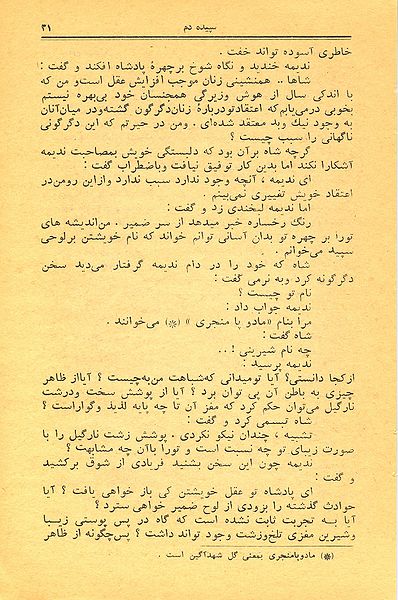 سپیده دم
۳۱
خاطری آسوده تواند خفت .
ندیمه خندید و نگاه شوخ برچهرهٔ پادشاه افکند و گفت :
شاها .. همنشینی زنان موجب افزایش عقل است و من که
با اندکی سال از هوش وزیرکی همجنسان خود بی‌بهره نیستم
بخوبی درمی‌یابم که اعتقاد تو دربارهٔ زنان دگرگون گشته و در میان آنان
به وجود نیك وبد معتقد شده‌ای . ومن در حیرتم که این دگرگونی
ناگهانی را سبب چیست ؟
گرچه شاه برآن بود که دلبستگی خویش بمصاحبت ندیمه
آشکارا نکند اما بدین کار توفیق نیافت وباضطراب گفت :
ای ندیمه ، آنچه وجود ندارد سبب ندارد وازاین رومن‌در
اعتقاد خویش تغییری نمی‌بینم .
اما ندیمه لبخندی زد و گفت :
رنگ رخساره خبر میدهد از سر ضمیر . من‌اندیشه های
تورا بر چهره تو بدان آسانی توانم خواند که نام خویشتن برلوحی
سپید می‌خوانم .
شاه که خود را در دام ندیمه گرفتار می‌دید سخن
دگرگونه کرد وبه نرمی گفت :
نام تو چیست ؟
ندیمه جواب داد :
مرا بنام «مادو پا منجری » (※) می‌خوانند .
شاه گفت :
چه نام شیرینی ! ..
ندیمه پرسید :
ازکجا دانستی؟ آیا تومیدانی که‌شباهت من‌به‌چیست ؟ آیااز ظاهر
چیزی به باطن آن پی توان برد ؟ آیا از پوشش سخت ودرشت
نارگیل می‌توان حکم کرد که مغز آن تا چه پایه لذیذ وگواراست ؟
شاه تبسمی کرد و گفت :
تشبیه ، چندان نیکو نکردی . پوشش زشت نارگیل را با
صورت زیبای تو چه نسبت است و تورا باآن چه مشابهت ؟
ندیمه چون این سخن بشنید فریادی از شوق برکشید
و گفت :
ای پادشاه تو عقل خویشتن کی باز خواهی یافت ؟ آیا
حوادث گذشته را بزودی از لوح ضمیر خواهی سترد ؟
آیا به تجربت ثابت نشده است که گاه در پس پوستی زیبا
وشیرین مغزی تلخ‌وزشت وجود تواند داشت ؟ پس‌چگونه از ظاهر
(※) مادوپامنجری بمعنی گل شهدآگین است .